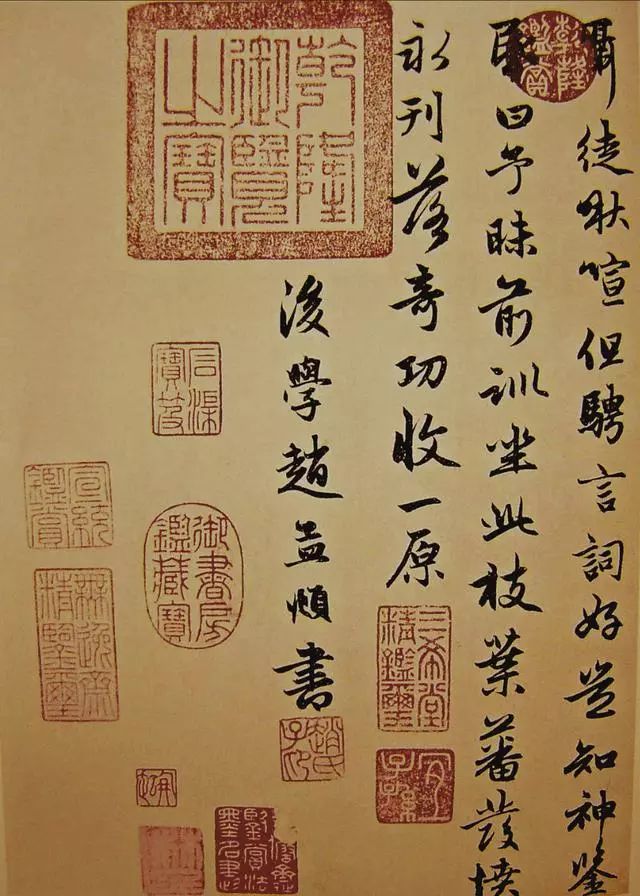 囁徒啾喧但騁言詞好豈知神鑒
昏曰予昧前訓坐此枝葉蕃發憤
永刊落奇功收一原
後學趙孟頫書
乾隆鑑賞
乾隆御覽之寶
三希堂精鑑璽
宜子孫
石渠寶笈
御書房鑑藏寶
宣統鑑賞
無逸齋精鑒璽